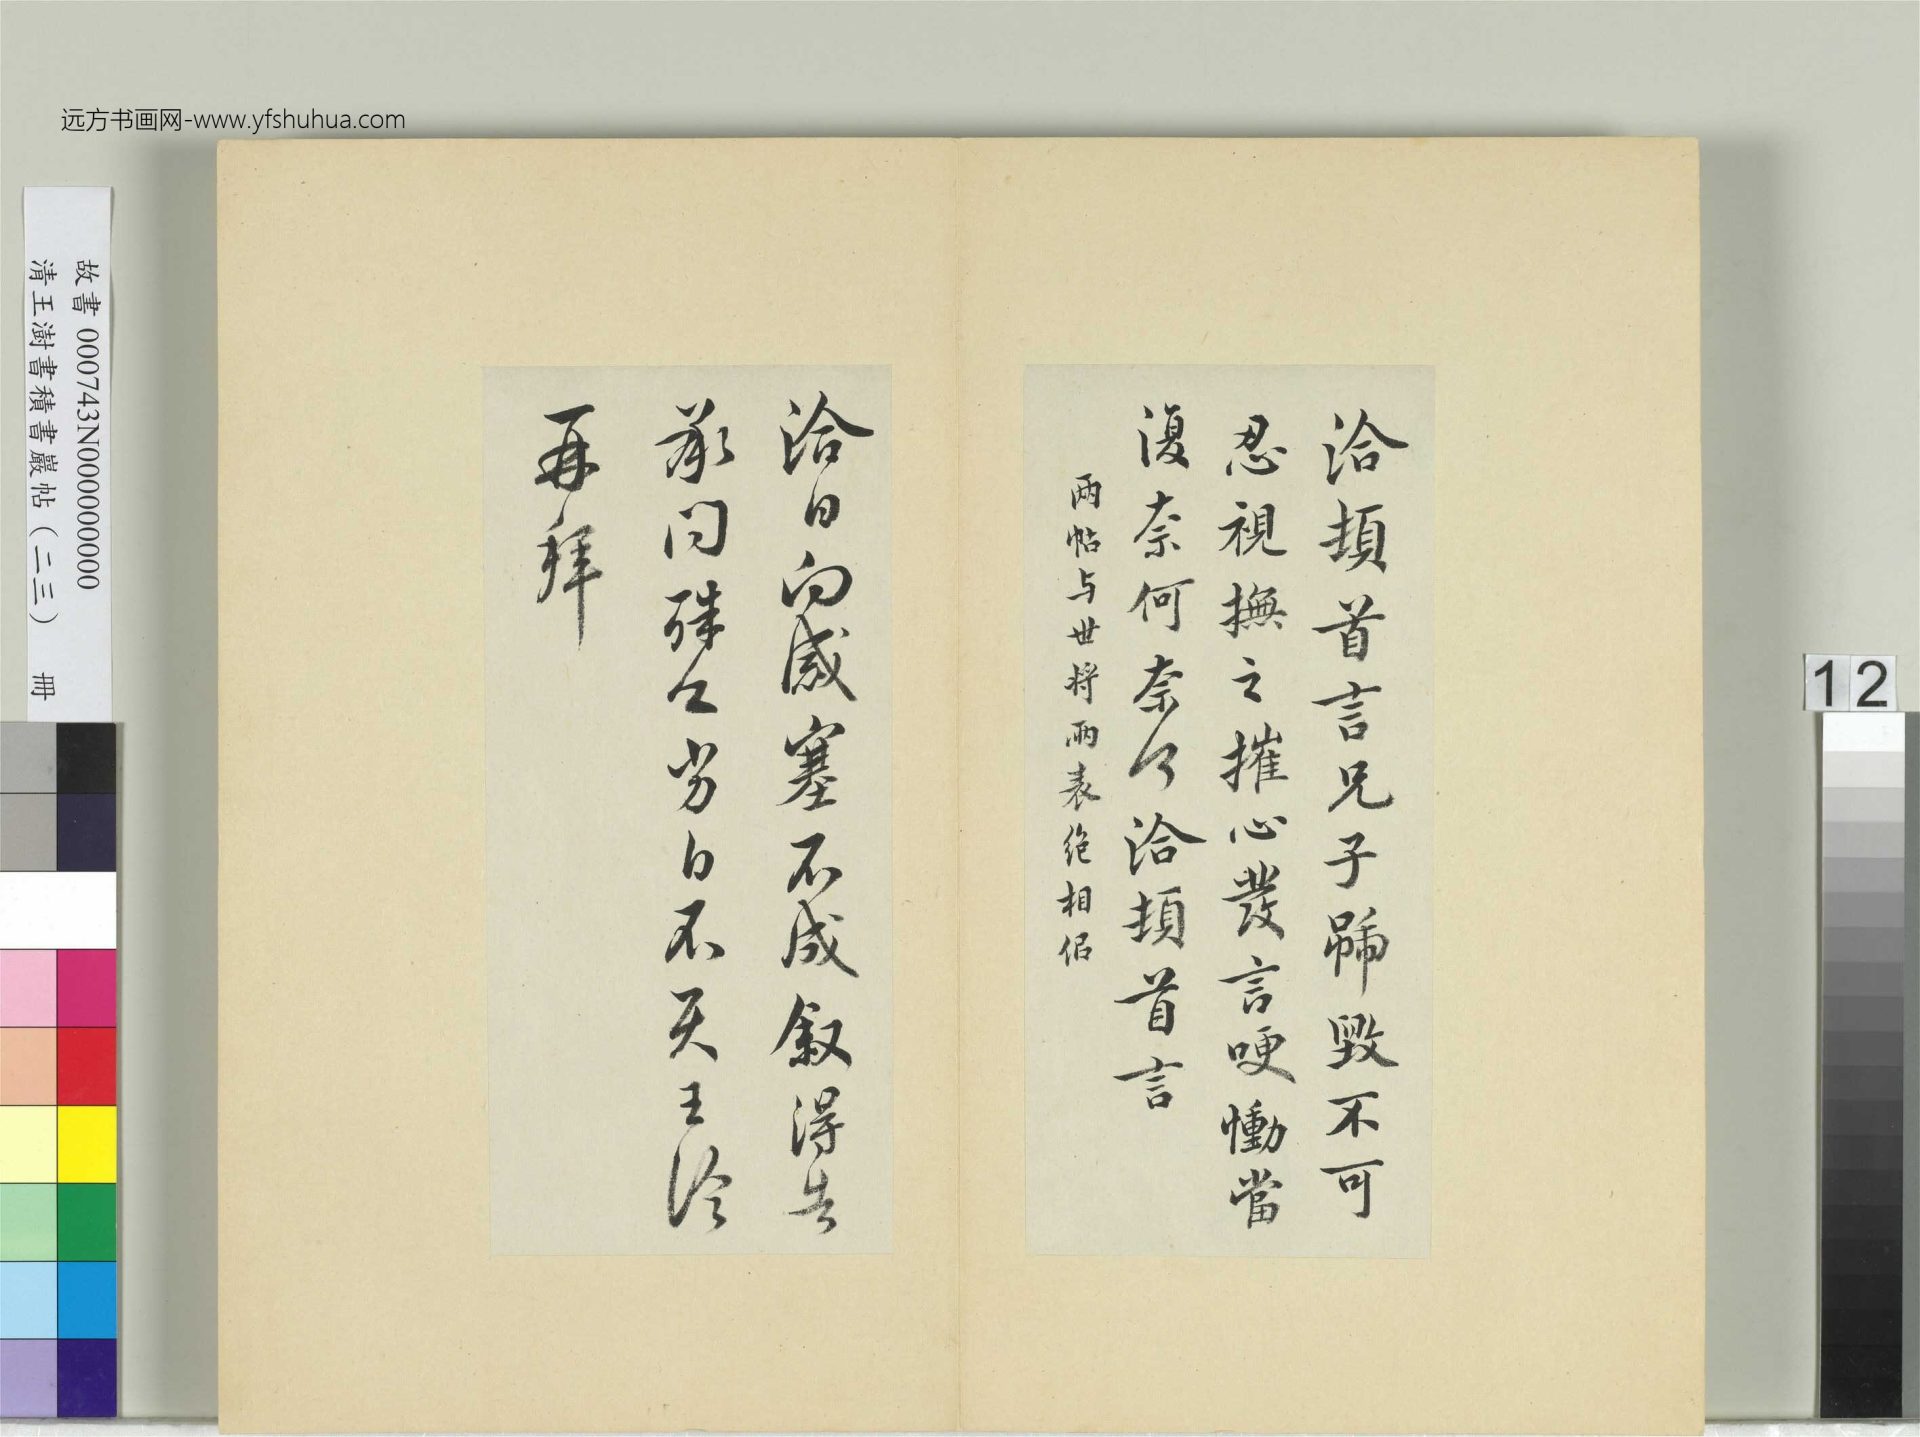 远方书画网-www.yfshuhua.com
故書 000743N000000000
清王澍書積書巖帖（二三） 冊
12
洽頓首言兄子號毀不可
忍視撫之摧心發言哽慟當
復奈何奈何洽頓首言
两帖与世将兩表绝相侣
洽白向感塞不成叙得告
承問殊々劣白不具王洽
再拜